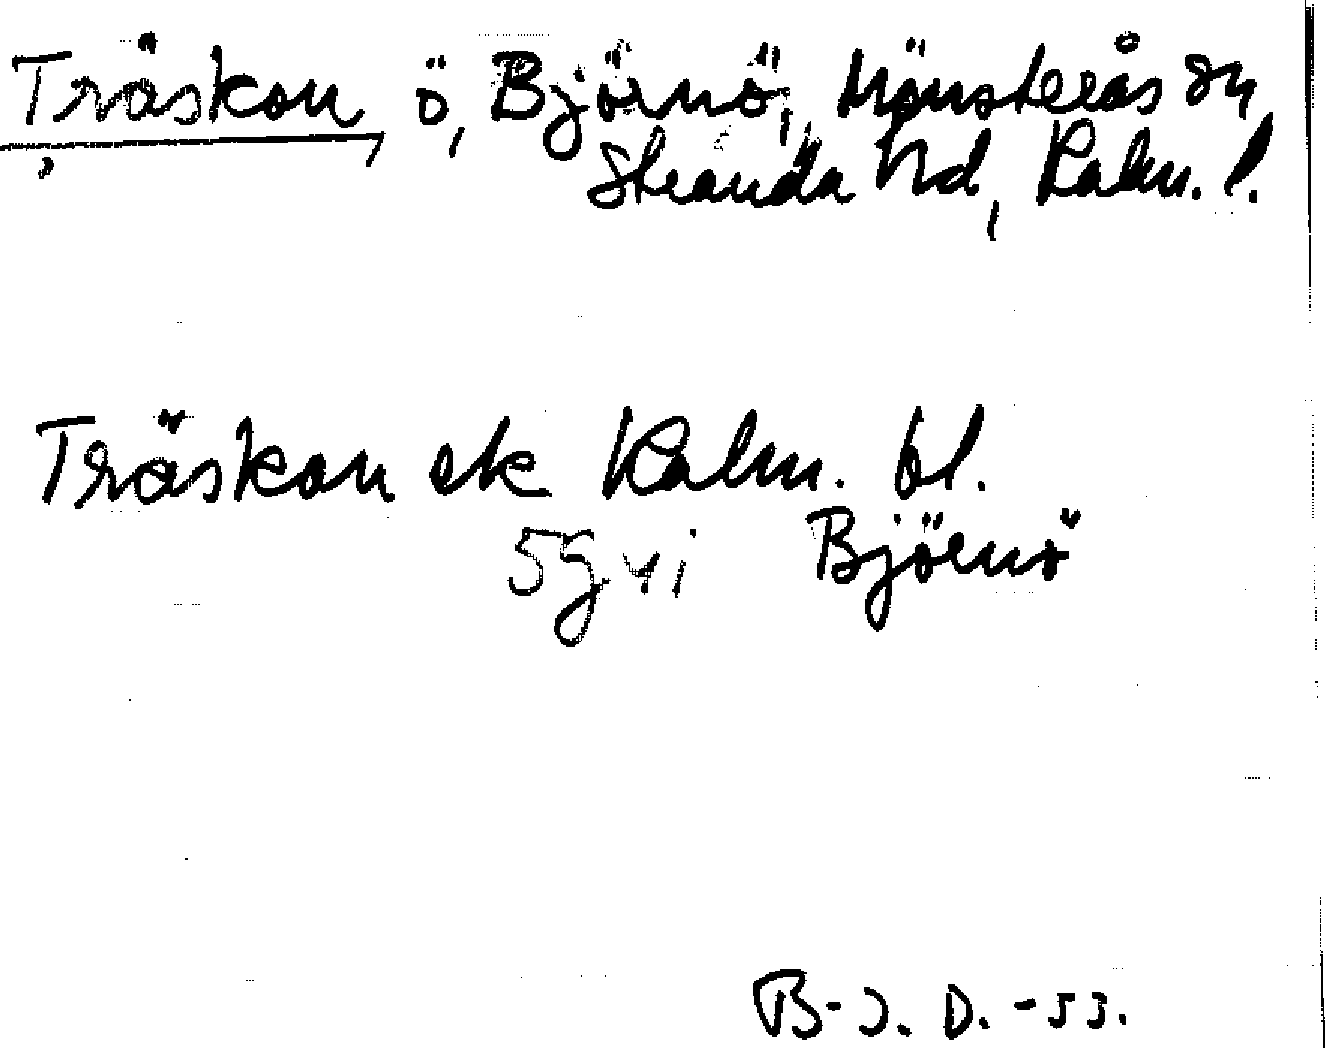 Träskon, ö, Björnö, Mönsterås sn,
Stranda hd, Kalm. l.
Träskon ek Kalm. bl.
5g vi Björnö
B-J. D. -53.